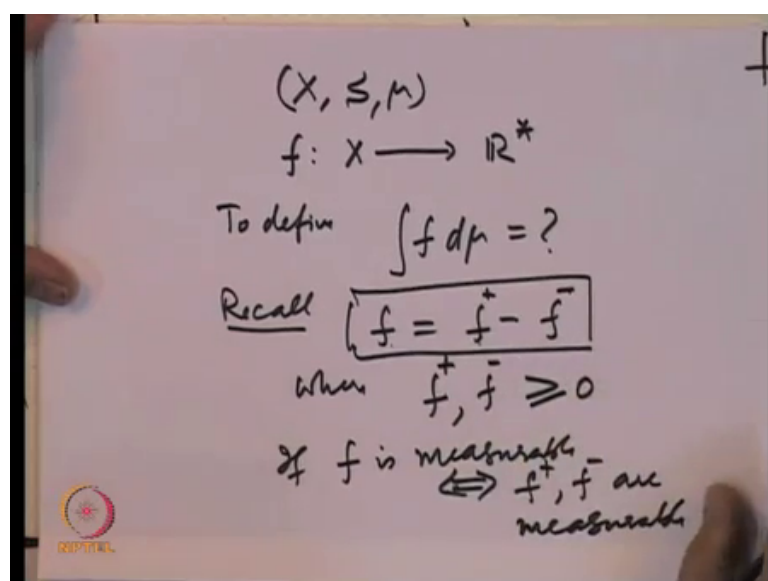 (X, S, μ)
f
f: X ⟶ ℝ*
To define ∫ f dμ = ?
Recall f = f⁺ - f⁻
where f⁺, f⁻ ≥ 0
If f is measurable
⇔ f⁺, f⁻ are
measurable
NPTEL